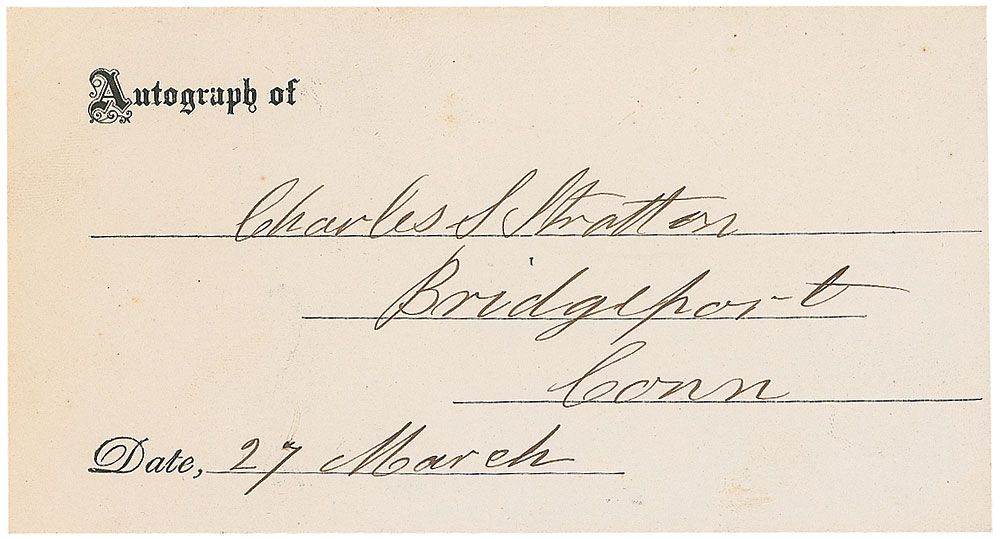 Autograph of
Charles S Stratton
Bridgeport
Conn
Date, 27 March